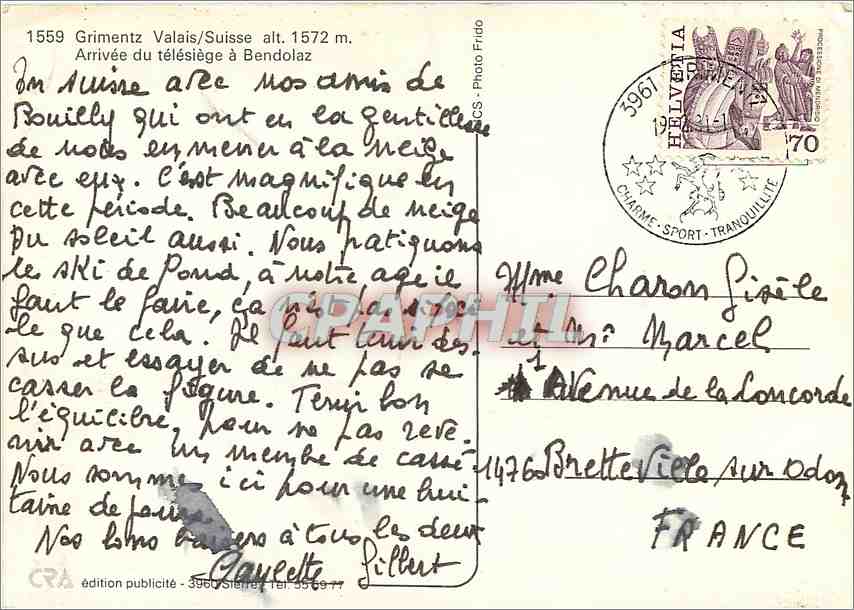 1559 Grimentz Valais/Suisse alt. 1572 m.
Arrivée du télésiège à Bendolaz
En suisse avec nos amis de
Bouilly qui ont eu la gentillesse
de nous emmener à la neige
avec eux. C'est magnifique en
cette période. Beaucoup de neige
Du soleil aussi. Nous patiquons
le ski de Fond, à notre age il
faut le faire, ça n'est pas si faci
le que cela. Il faut tenir des
sus et essayer de ne pas se
casser la figure. Tenir bon
l'équilibre, pour ne pas reve.
nir avec un membre de cassé
Nous sommes ici pour une hui-
taine de jours
Nos bons baisers à tous les deux
Paulette Gilbert
CRA édition publicité - 3960 Sierre Tél. 55 69 77
CS - Photo Frido
HELVETIA
PROCESSIONE DI MENDRISIO
70
3961 GRIMENTZ
CHARME - SPORT - TRANQUILLITE
Mme Charon Gisèle
et Mr Marcel
1 Avenue de la Concorde
14760 Bretteville sur Odon
FRANCE
CPAPHIL